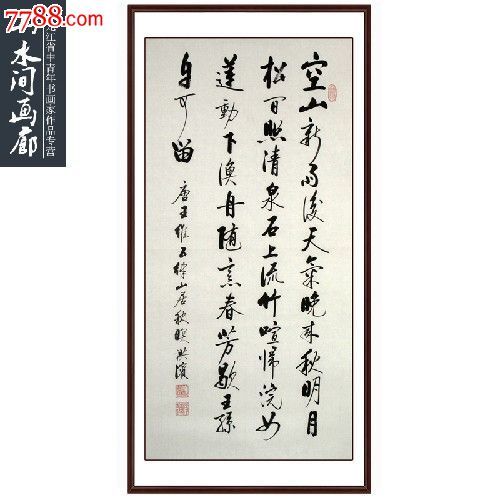 7788.com
水间画廊
江省中青年书画家作品专营
空山新雨後天氣晚来秋明月
松間照清泉石上流竹喧歸浣女
蓮動下漁舟随意春芳歇王孫
自可留
唐王維五律山居秋暝洪濱